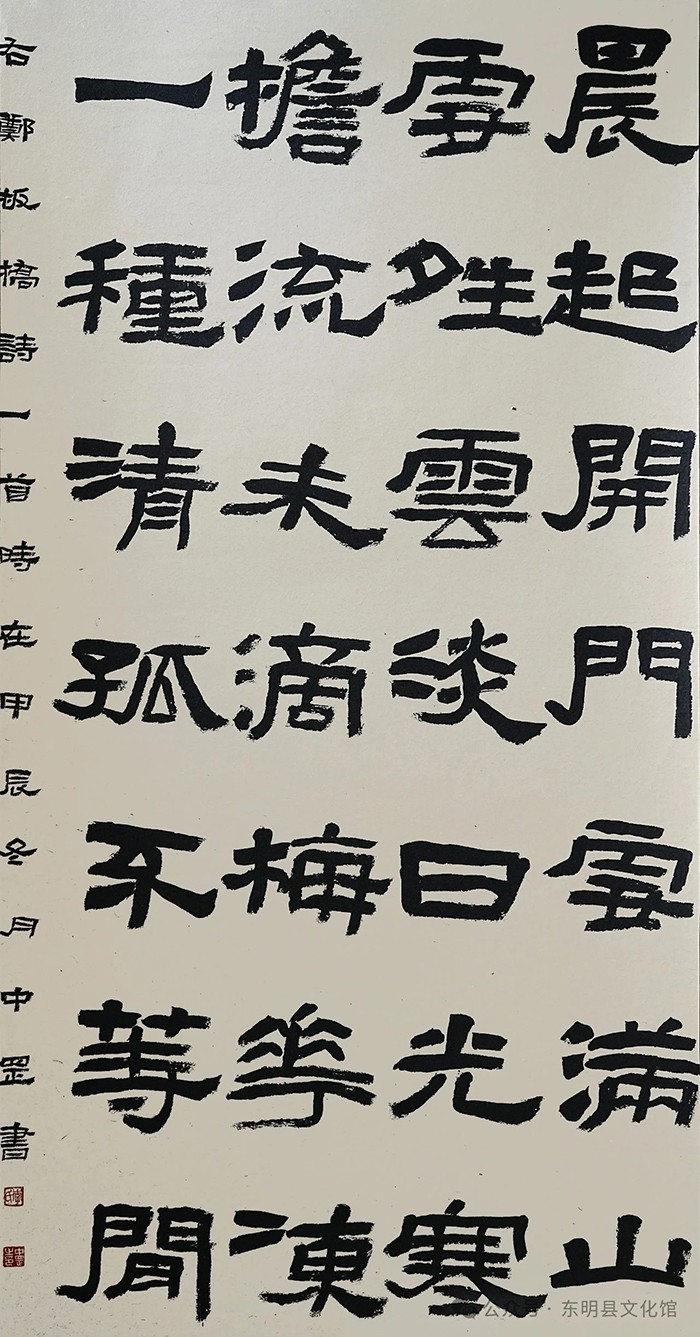 晨起開門雪滿山
雪夝雲淡日光寒
檐流未滴梅花凍
一種清孤不等閒
右鄭板橋詩一首時在甲辰冬月中罡書
公众号 · 东明县文化馆